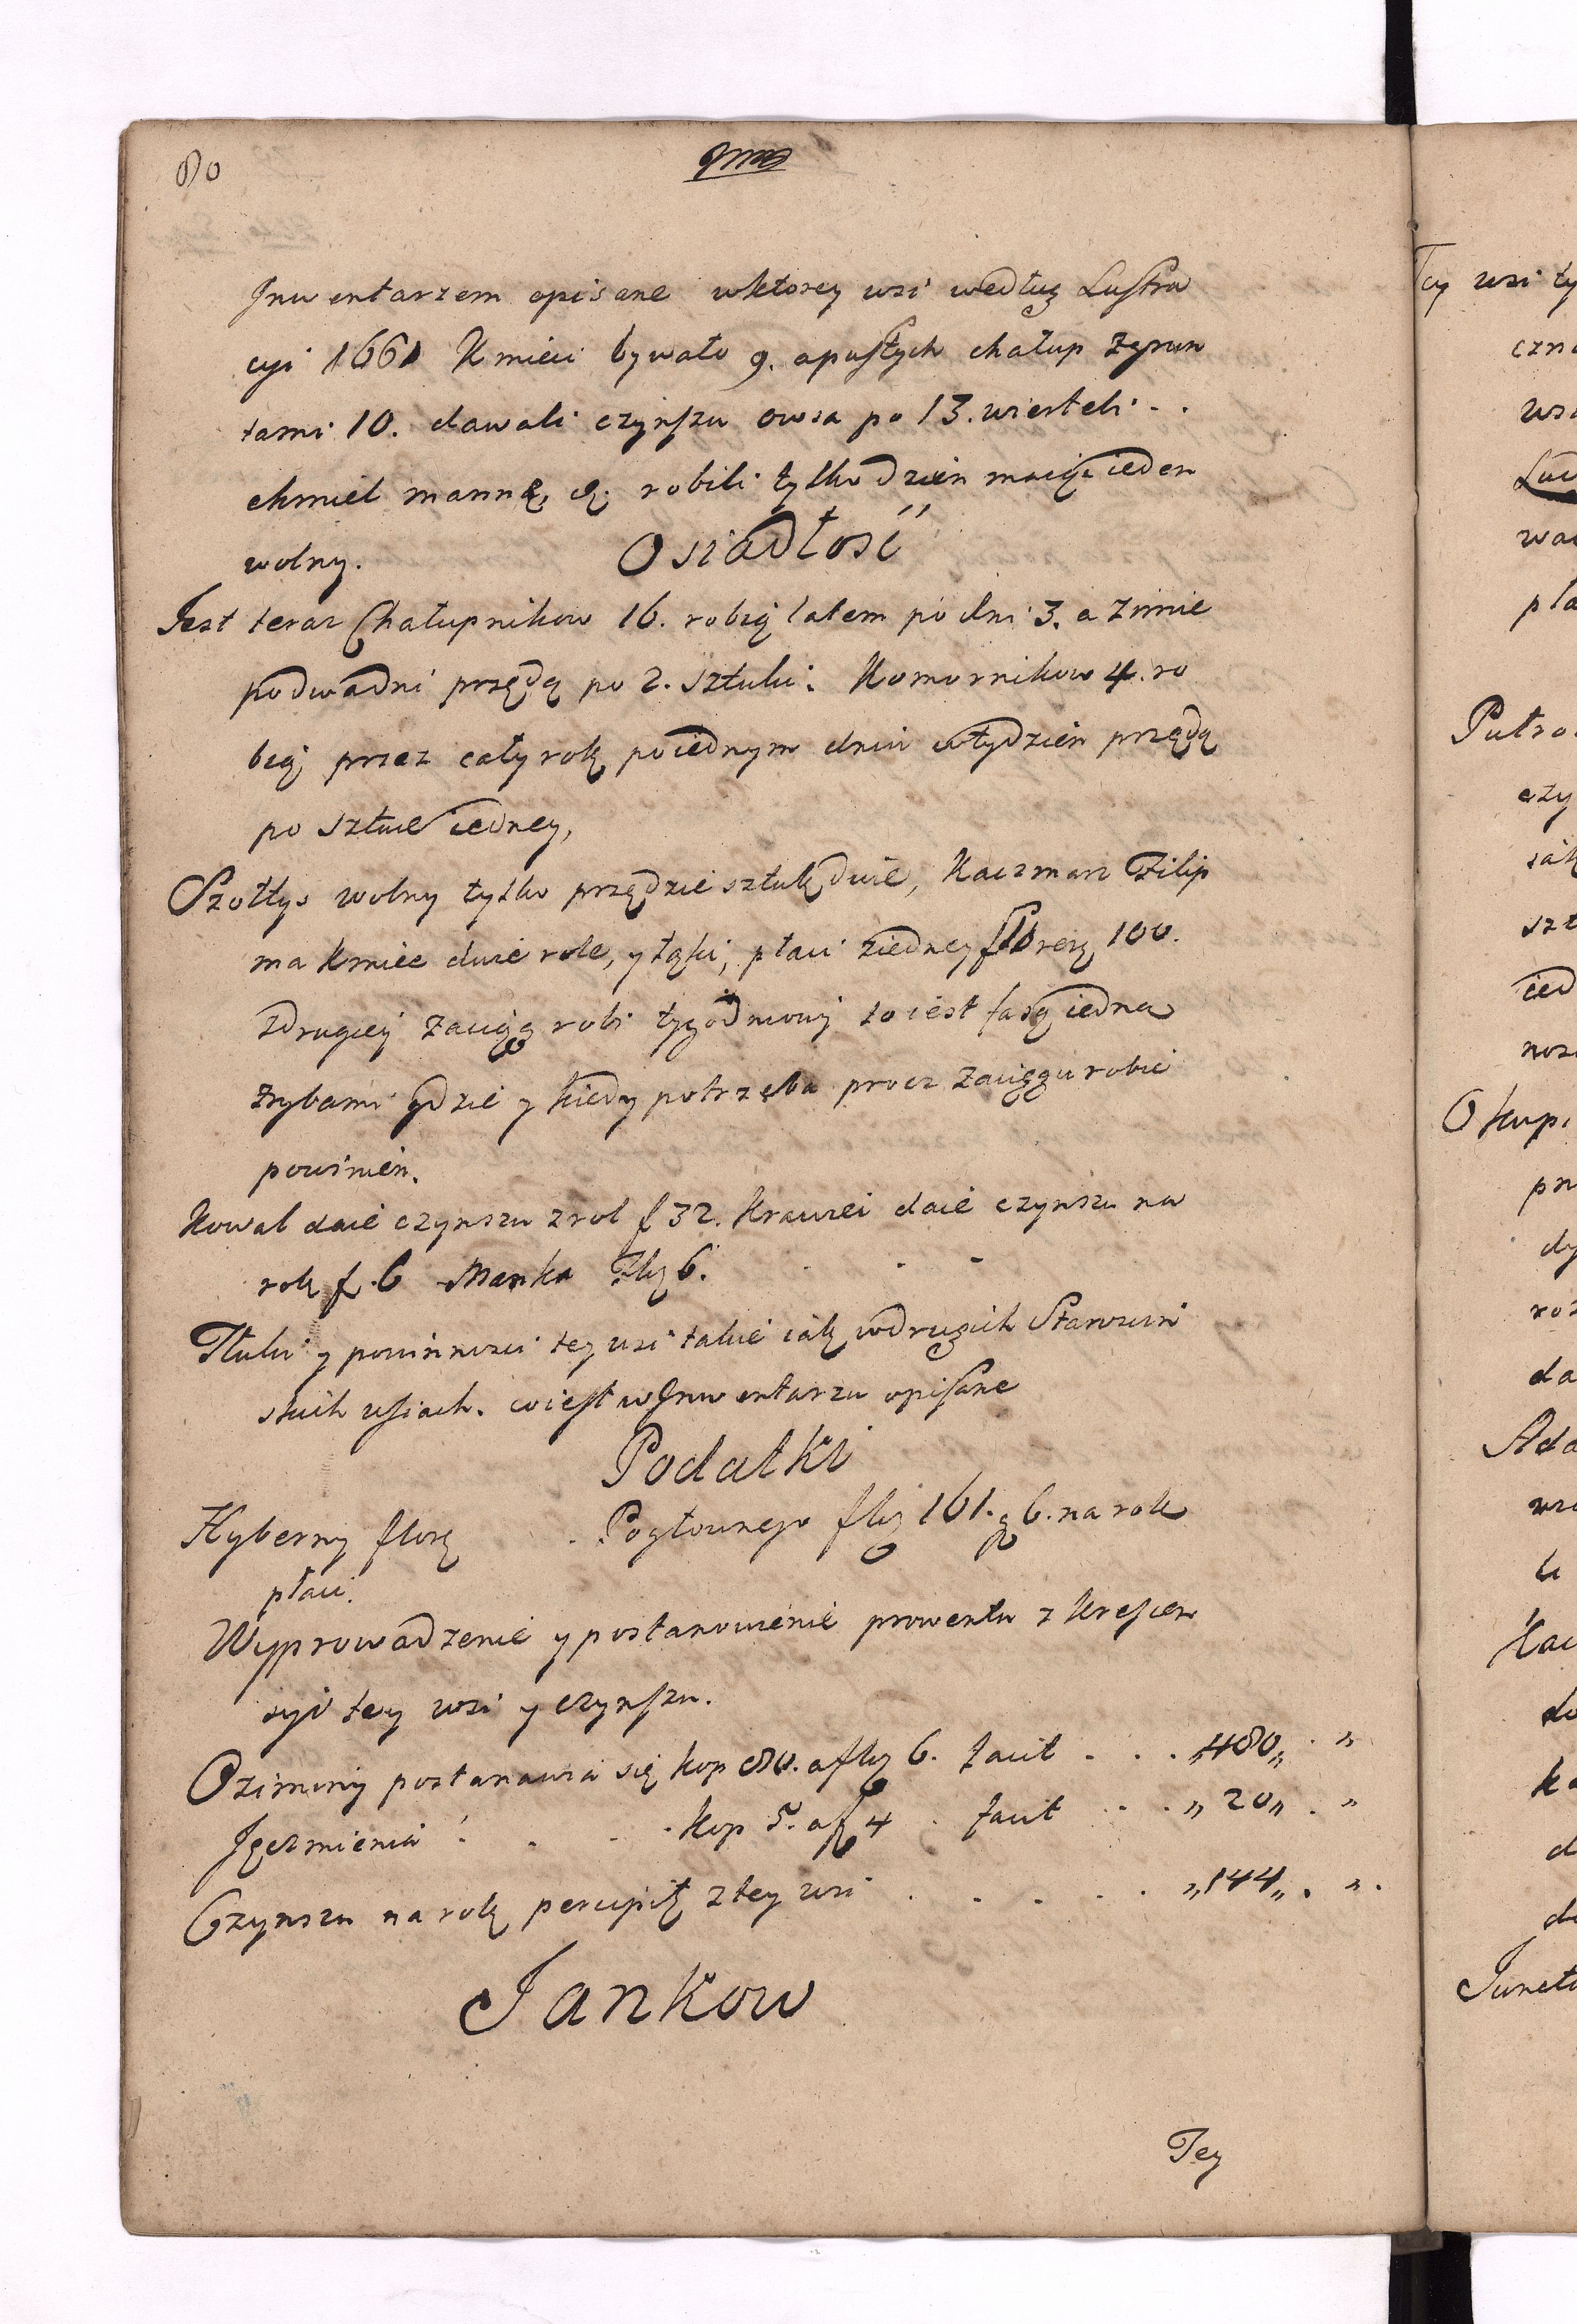 80
Jnwentarzem opisane wktorey wsi według Lustra
cyi 1661 Kmieci bywało 9. apustych chałup zgrun
tami 10. dawali czynszu owsa po 13. wierteli . .
chmiel mannę, robili tylko dzień maiąc ieden
wolny. Osiadłość
Jest teraz Chałupnikow 16. robią latem po dni 3. a zimie
podwadni przędą po 2. sztuki. Komornikow 4. ro
bią przez cały rok poiednym dniu wtydzien przędą
po sztuce iedney,
Szołtys wolny tylko przędzie sztuk dwie, Kaczmarz Filip
ma kmiec dwie role, y łąki, płaci ziedney 100.
zdrugiey zaciąg robi tygodniowy to iest fasę iedna
zrybami gdzie y kiedy potrzeba procz zaciągu robic
powinien.
Kowal daie czynszu zrol f 32. Krawiec daie czynszu na
rok f. 6 Manka Flg 6. . - -
Tłuki y powinnosci tey wsi takie iak wdrugich Starosciń
skich wsiach. coiest wJnwentarzu opisane
Podatki
Hyberny flor . Pogłownego flg 161. g 6. na rok
płaci.
Wyprowadzenie y postanowienie prowentu z krescen
syi tey wsi y czynszu.
Oziminy postanawia się kop 80. aflg 6. facit . . . „480„ . „
Jęczmienia . . . . kop 5. af 4 . facit . . . „ 20„ . „
Czynszu na rok percipit ztey wsi . . . . . „144„ . „ .
Jankow
Tey
Tey wsi ty
czn
ws
wa
pła
Putro
czy
iak
szt
ied
nos
Okupi
pr
dy
roz
da
Ada
Kac
do
ka
d